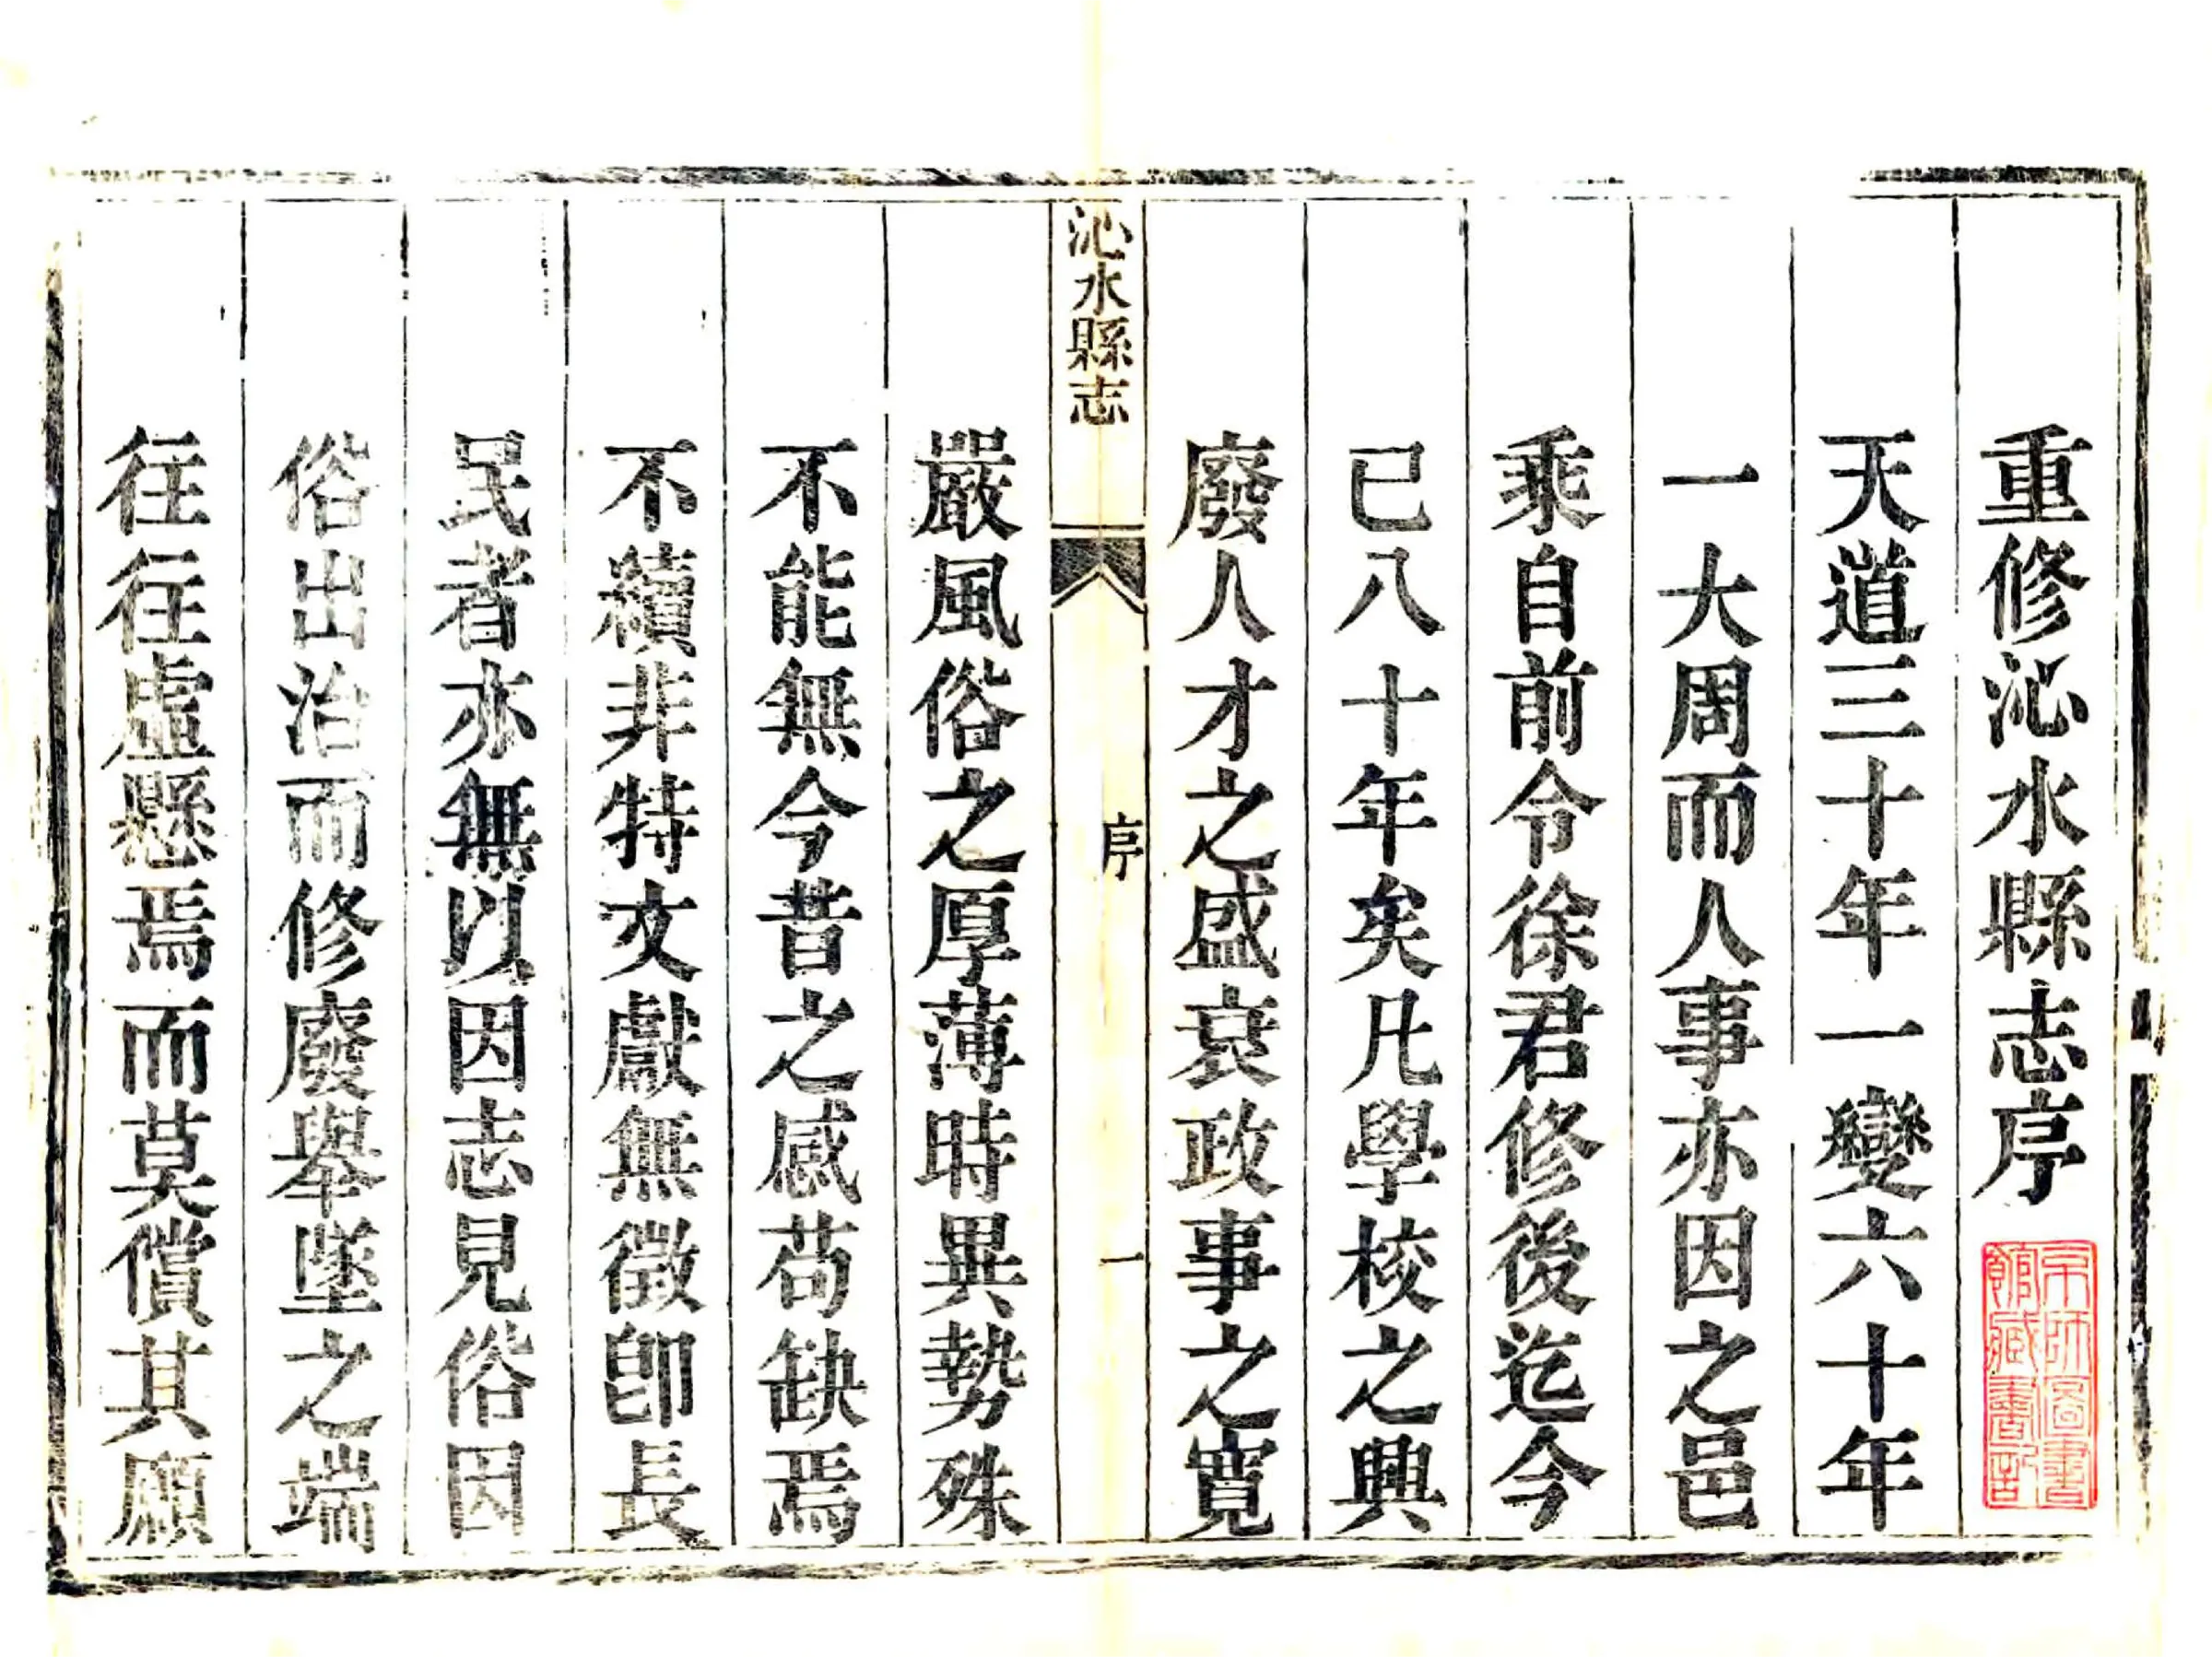 重修沁水縣志序
京師圖書
館藏書記
天道三十年一變六十年
一大周而人事亦因之邑
乘自前令徐君修後迄今
已八十年矣凡學校之興
廢人才之盛衰政事之寬
沁水縣志
序
一
嚴風俗之厚薄時異勢殊
不能無今昔之感苟缺焉
不續非特文獻無徵卽長
民者亦無以因志見俗因
俗出治而修廢舉墜之端
往往虛懸焉而莫償其願